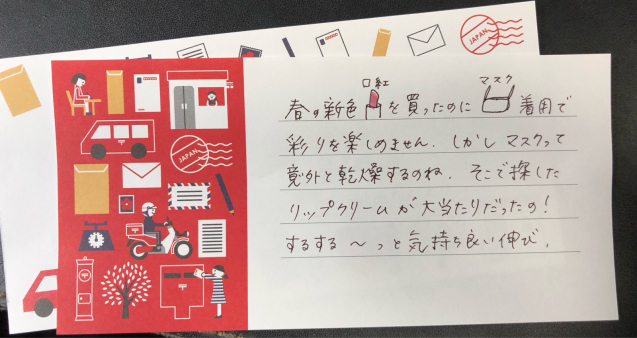 JAPAN
口紅
マスク
春の新色 を買ったのに 着用で
彩りを楽しめません. しかし マスクって
意外と乾燥するのね. そこで探した
リップクリームが大当たりだったの!
するする〜っと気持ち良い伸び.
JAPAN